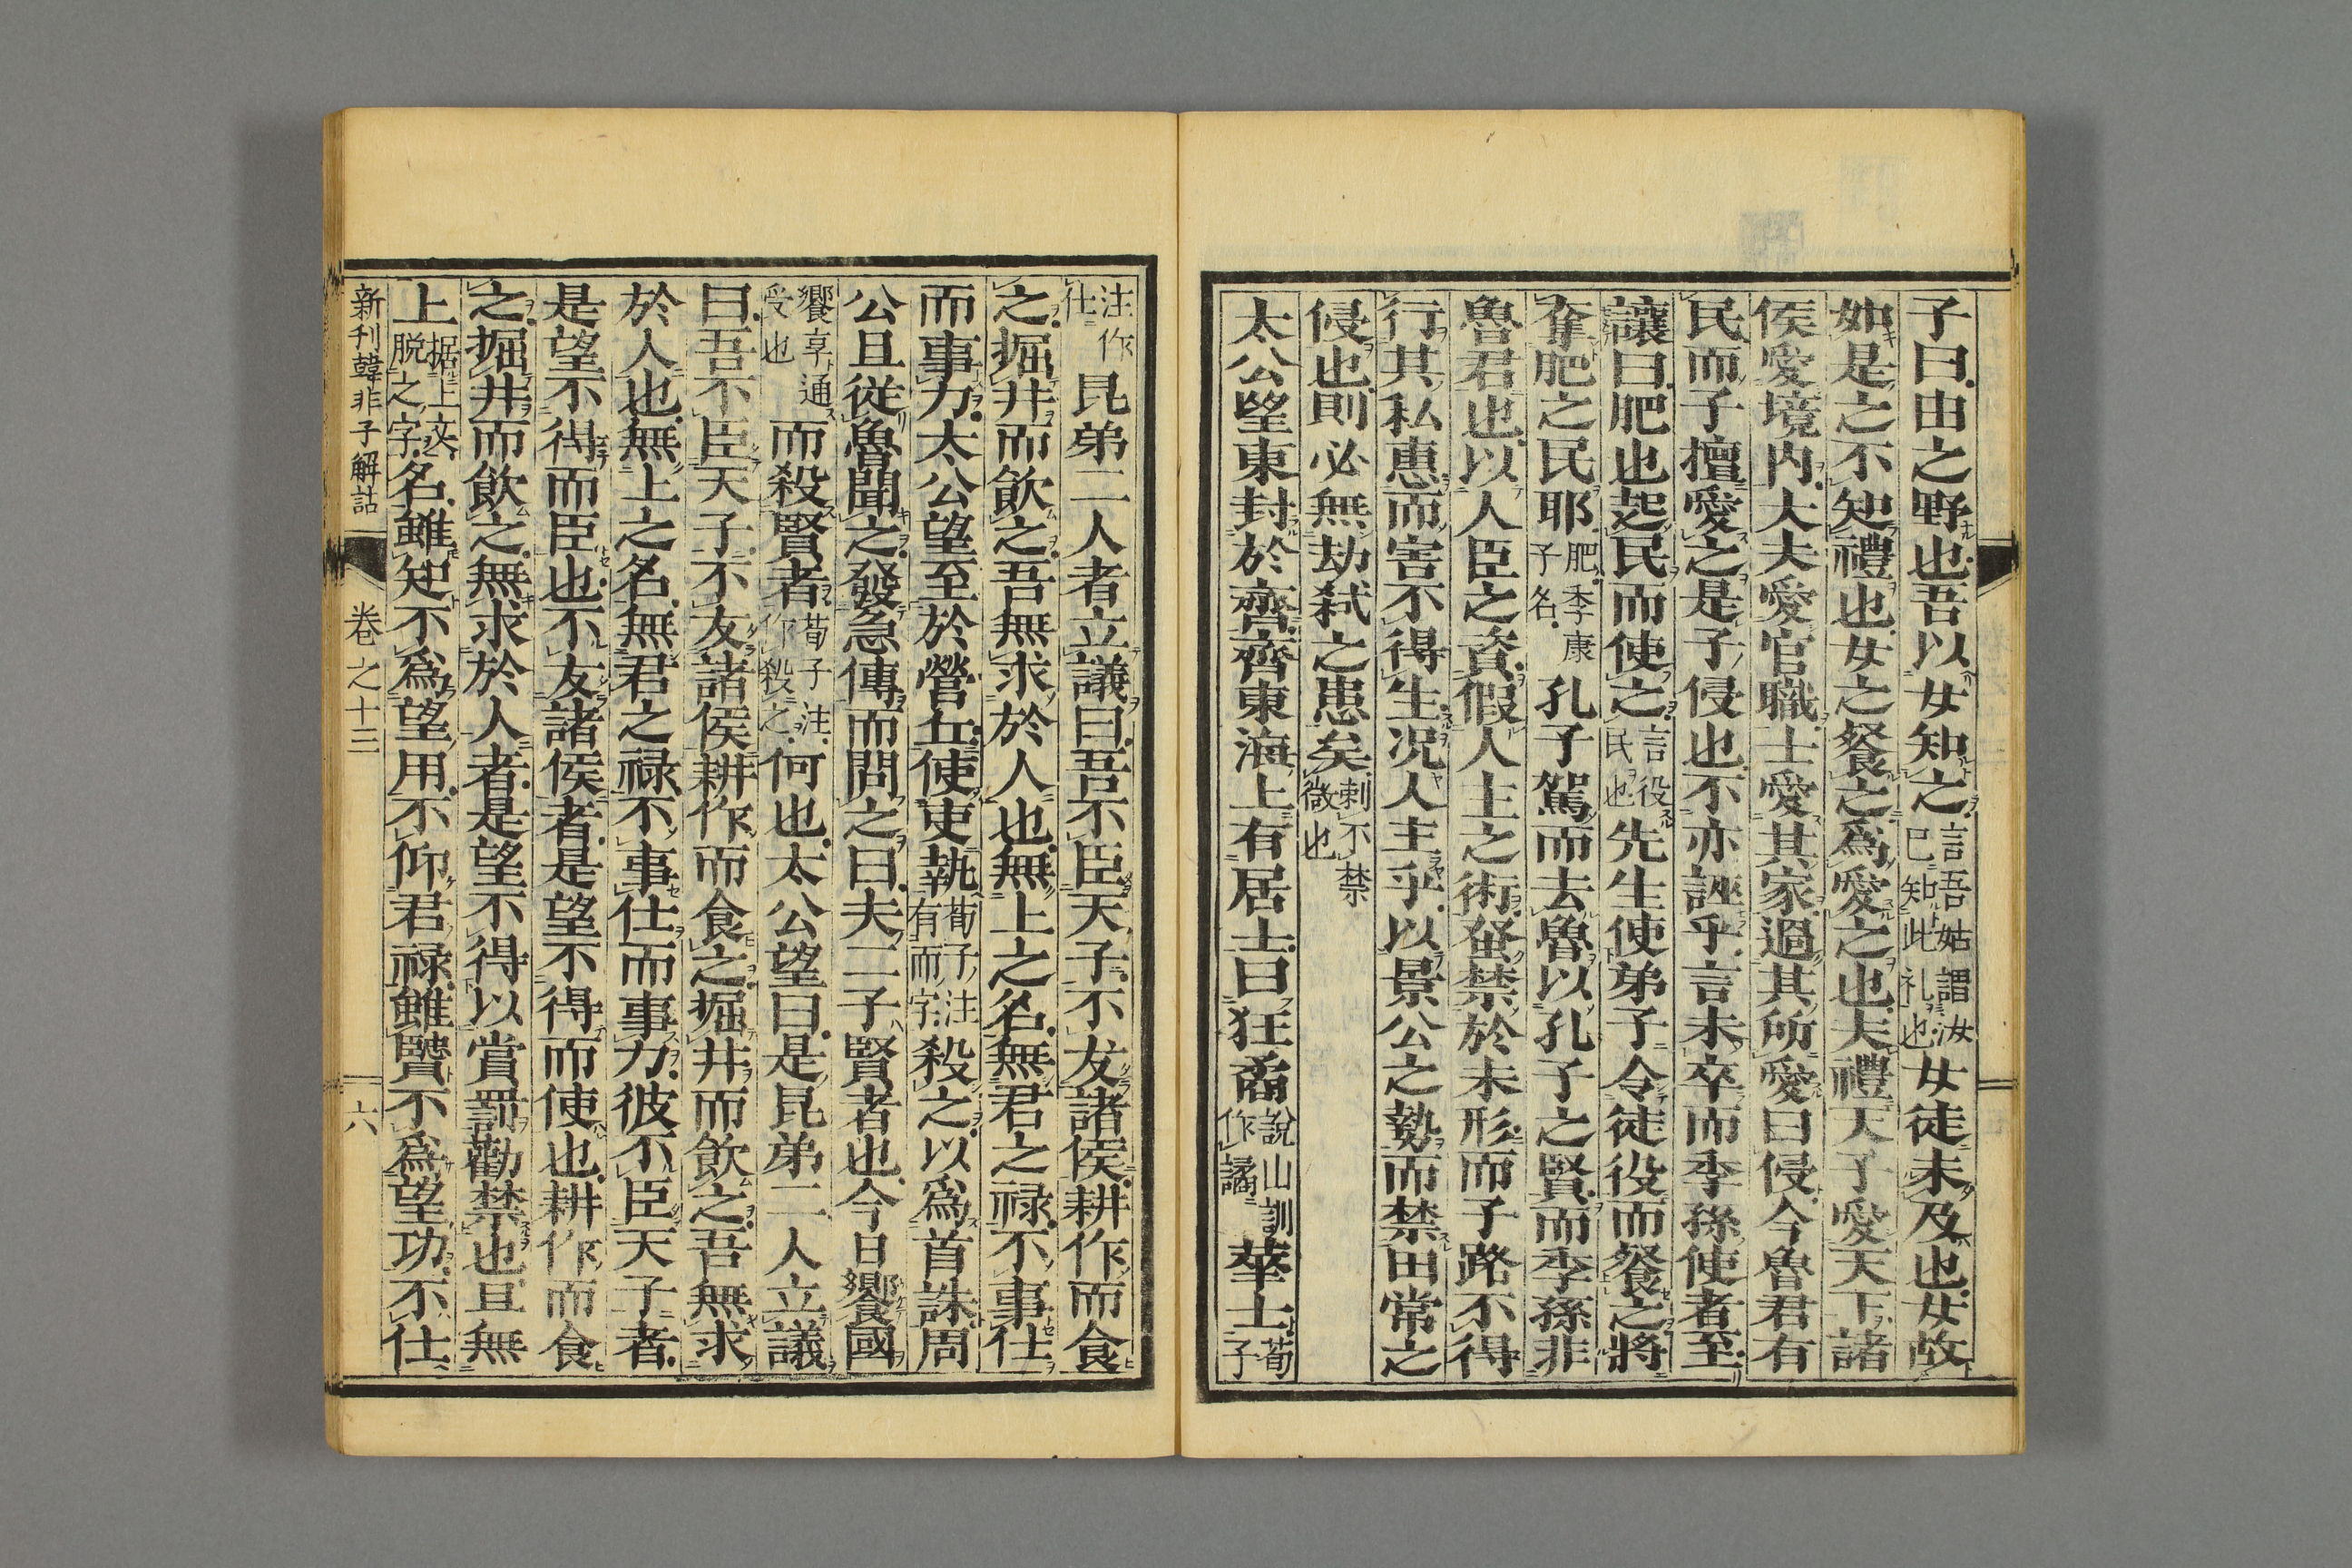 子曰由之野也吾以女知之言吾姑謂汝已知此礼也女徒未及也女故
如是之不知禮也女之餐之爲愛之也夫禮天子愛天下諸
侯愛境内大夫愛官職士愛其家過其所愛曰侵今魯君有
民而子擅愛之是子侵也不亦誣乎言未卒而季孫使者至
讓曰肥也起民而使之言役民也先生使弟子令徒役而餐之將
奪肥之民耶肥季康子名孔子駕而去魯以孔子之賢而季孫非
魯君也以人臣之資假人主之術蚤禁於未形而子路不得
行其私惠而害不得生况人主乎以景公之勢而禁田常之
侵也則必無劫弑之患矣刺不禁微也
太公望東封於齊齊東海上有居士曰狂矞說山訓作譎華士荀子
注作仕昆弟二人者立議曰吾不臣天子不友諸侯耕作而食
之掘井而飲之吾無求於人也無上之名無君之禄不事仕
而事力太公望至於營丘使吏執荀子注有而字殺之以爲首誅周
公旦從魯聞之發急傳而問之曰夫二子賢者也今日饗國
饗享通受也而殺賢者荀子注作殺之何也太公望曰是昆弟二人立議
曰吾不臣天子不友諸侯耕作而食之掘井而飲之吾無求
於人也無上之名無君之禄不事仕而事力彼不臣天子者
是望不得而臣也不友諸侯者是望不得而使也耕作而食
之掘井而飲之無求於人者是望不得以賞罰勸禁也且無
上据上文脱之字名雖知不爲望用不仰君禄雖賢不爲望功不仕
新刊韓非子解詁 卷之十三 六